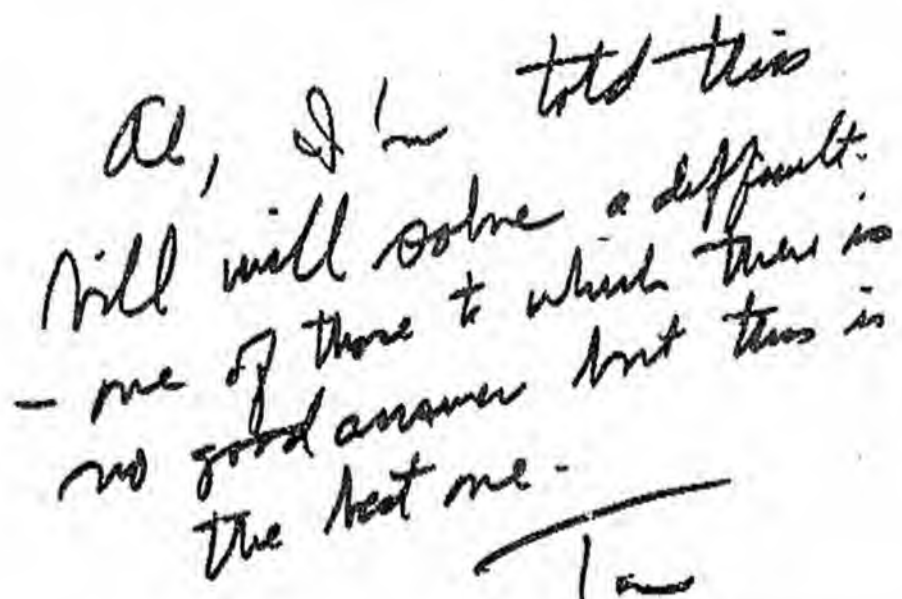 Al, I'm told this
bill will solve a difficult.
- one of those to which there is
no good answer but this is
the best one.
Tom